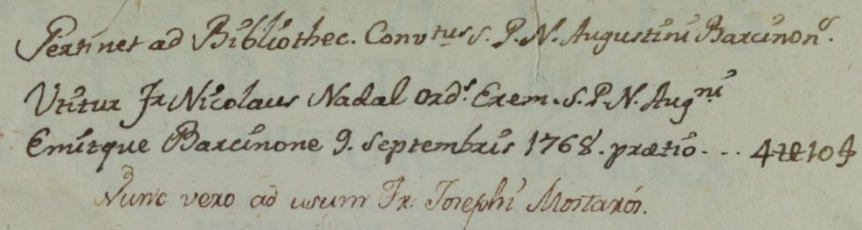 Pertinet ad Bibliothec. Convtus S. P. N. Augustini Barcinons.
Utitur Fr Nicolaus Nadal Ords. Erem. S. P. N. Augni
Emitque Barcinone 9. Septembris 1768. prætio. ... 4 10
Nunc vero ad usum Fr. Josephi Mostarós.